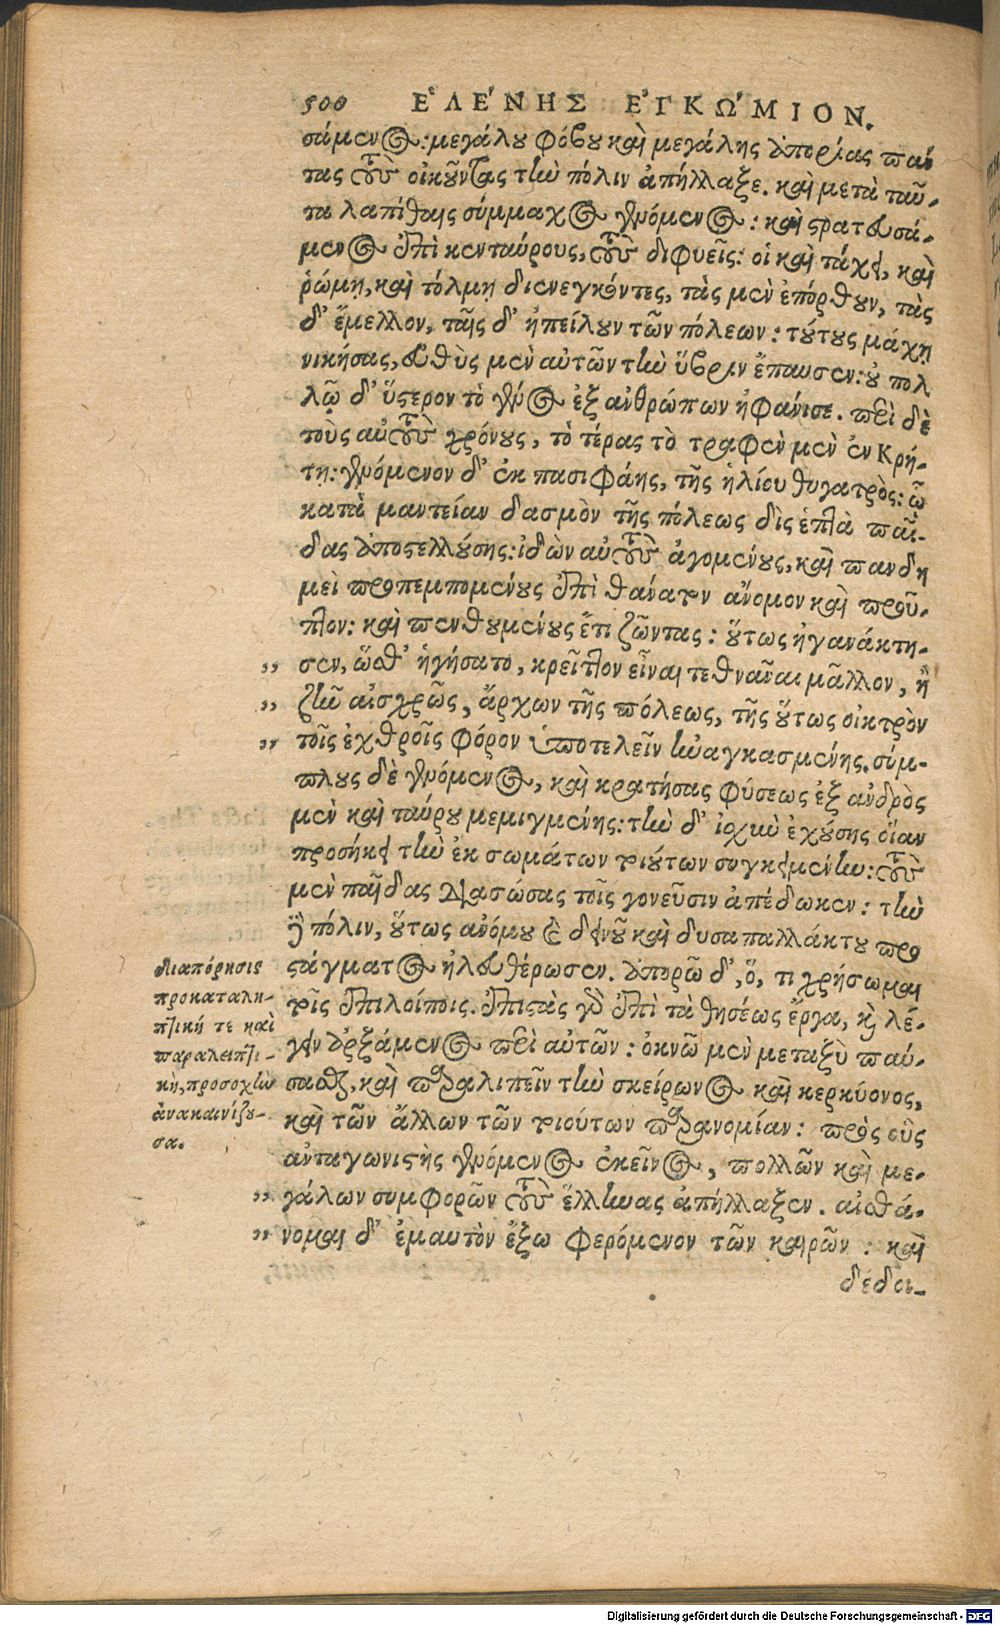 500 ἙΛΕ΄ΝΗΣ ἘΓΚΩ΄ΜΙΟΝ.
σάμενος: μεγάλου φόβου καὶ μεγάλης ἀπορίας πάν
τας τοὺς οἰκοῦντας τὴν πόλιν ἀπήλλαξε. καὶ μετὰ ταῦ-
τα λαπίθαις σύμμαχος γενόμενος: καὶ στρατευσά-
μενος ἐπὶ κενταύρους, τοὺς διφυεῖς: οἱ καὶ τάχει, καὶ
ῥώμῃ, καὶ τόλμῃ διενεγκόντες, τὰς μὲν ἐπόρθουν, τὰς
δ' ἔμελλον, ταῖς δ' ἠπείλουν τῶν πόλεων: τούτους μάχῃ
νικήσας, εὐθὺς μὲν αὐτῶν τὴν ὕβριν ἔπαυσεν: οὐ πολ
λῷ δ' ὕστερον τὸ γένος ἐξ ἀνθρώπων ἠφάνισε. περὶ δὲ
τοὺς αὐτοὺς χρόνους, τὸ τέρας τὸ τραφὲν μὲν ἐν Κρή-
τῃ: γενόμενον δ' ἐκ πασιφάης, τῆς ἡλίου θυγατρὸς: ᾧ
κατὰ μαντείαν δασμὸν τῆς πόλεως δὶς ἑπτὰ παῖ-
δας ἀποστελλούσης: ἰδὼν αὐτοὺς ἀγομένους, καὶ πανδη
μεὶ προπεμπομένους ἐπὶ θάνατον ἄνομον καὶ προῦ-
πτον: καὶ πενθουμένους ἔτι ζῶντας: οὕτως ἠγανάκτη-
„ σεν, ὥσθ' ἡγήσατο, κρεῖττον εἶναι τεθνᾶναι μᾶλλον, ἢ
„ ζῆν αἰσχρῶς, ἄρχων τῆς πόλεως, τῆς οὕτως οἰκτρὸν
„ τοῖς ἐχθροῖς φόρον ὑποτελεῖν ἠναγκασμένης. σύμ-
πλους δὲ γενόμενος, καὶ κρατήσας φύσεως ἐξ ἀνδρὸς
μὲν καὶ ταύρου μεμιγμένης: τὴν δ' ἰσχὺν ἐχούσης οἵαν
προσήκει τὴν ἐκ σωμάτων τοιούτων συγκειμένην: τοὺς
μὲν παῖδας διασώσας τοῖς γονεῦσιν ἀπέδωκεν: τὴν
δὲ πόλιν, οὕτως ἀνόμου καὶ δεινοῦ καὶ δυσαπαλλάκτου προ
στάγματος ἠλευθέρωσεν. ἀπορῶ δ', ὅ, τι χρήσωμαι
τοῖς ἐπιλοίποις. ἐπιστὰς γὰρ ἐπὶ τὰ θησέως ἔργα, καὶ λέ-
γειν ἀρξάμενος περὶ αὐτῶν: ὀκνῶ μὲν μεταξὺ παύ-
σασθαι, καὶ παραλιπεῖν τὴν σκείρωνος καὶ κερκύονος,
καὶ τῶν ἄλλων τῶν τοιούτων παρανομίαν: πρὸς οὓς
ἀνταγωνιστὴς γενόμενος ἐκεῖνος, πολλῶν καὶ με-
„ γάλων συμφορῶν τοὺς ἕλληνας ἀπήλλαξεν. αἰσθά-
„ νομαι δ' ἐμαυτὸν ἔξω φερόμενον τῶν καιρῶν: καὶ
δέδοι-
διαπόρησις
προκαταλη-
πτική τε καὶ
παραλειπτι-
κὴ, προσοχὴν
ἀνακαινίζου-
σα.
Digitalisierung gefördert durch die Deutsche Forschungsgemeinschaft - DFG